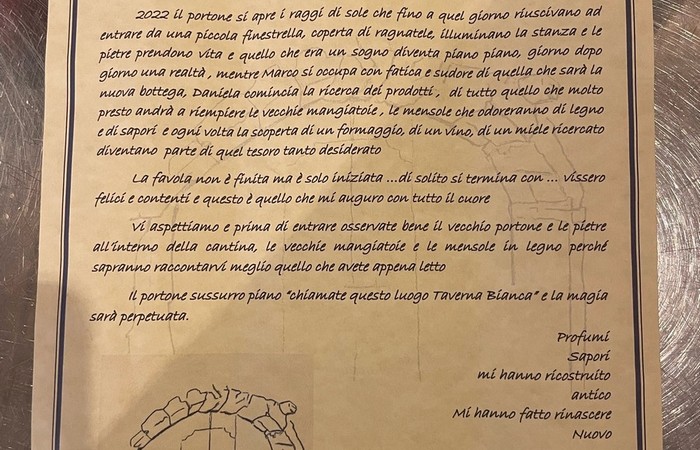 2022 il portone si apre i raggi di sole che fino a quel giorno riuscivano ad
entrare da una piccola finestrella, coperta di ragnatele, illuminano la stanza e le
pietre prendono vita e quello che era un sogno diventa piano piano, giorno dopo
giorno una realtà , mentre Marco si occupa con fatica e sudore di quella che sarà la
nuova bottega, Daniela comincia la ricerca dei prodotti , di tutto quello che molto
presto andrà a riempiere le vecchie mangiatoie , le mensole che odoreranno di legno
e di sapori e ogni volta la scoperta di un formaggio, di un vino, di un miele ricercato
diventano parte di quel tesoro tanto desiderato
La favola non è finita ma è solo iniziata ...di solito si termina con ... vissero
felici e contenti e questo è quello che mi auguro con tutto il cuore
Vi aspettiamo e prima di entrare osservate bene il vecchio portone e le pietre
all'interno della cantina, le vecchie mangiatoie e le mensole in legno perché
sapranno raccontarvi meglio quello che avete appena letto
Il portone sussurro piano "chiamate questo luogo Taverna Bianca" e la magia
sarà perpetuata.
Profumi
Sapori
mi hanno ricostruito
antico
Mi hanno fatto rinascere
Nuovo